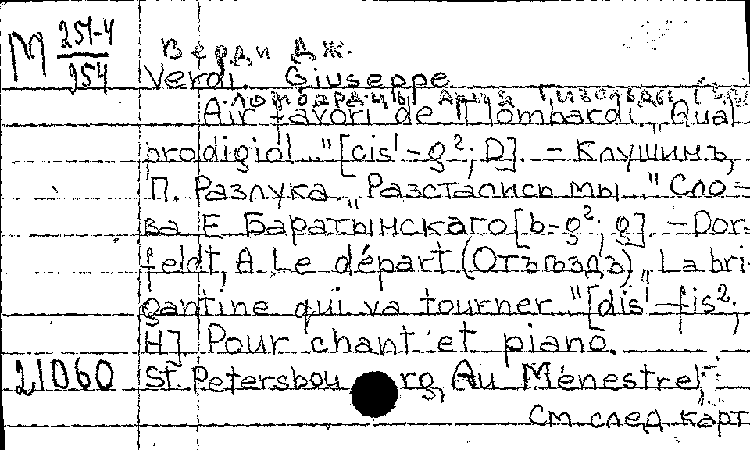 М 251-4
954
Верди Дж.
Verdi, Giuseppe
Ломбардцы Ария Гизельды
Air favori de "I Lombardi." "Qual
prodigio!..." [cis¹-g²; D]. - Клушинъ,
П. Разлука "Разстались мы..." Сло-
ва Е. Баратынскаго [b-g²; g]. - Dor-
feldt, A. Le départ (Отъѣздъ) "La bri-
gantine qui va tourner..." [dis¹-fis²;
H] Pour chant et piano.
21060 St Petersbourg, Au Ménestrel,
См. след. карт.